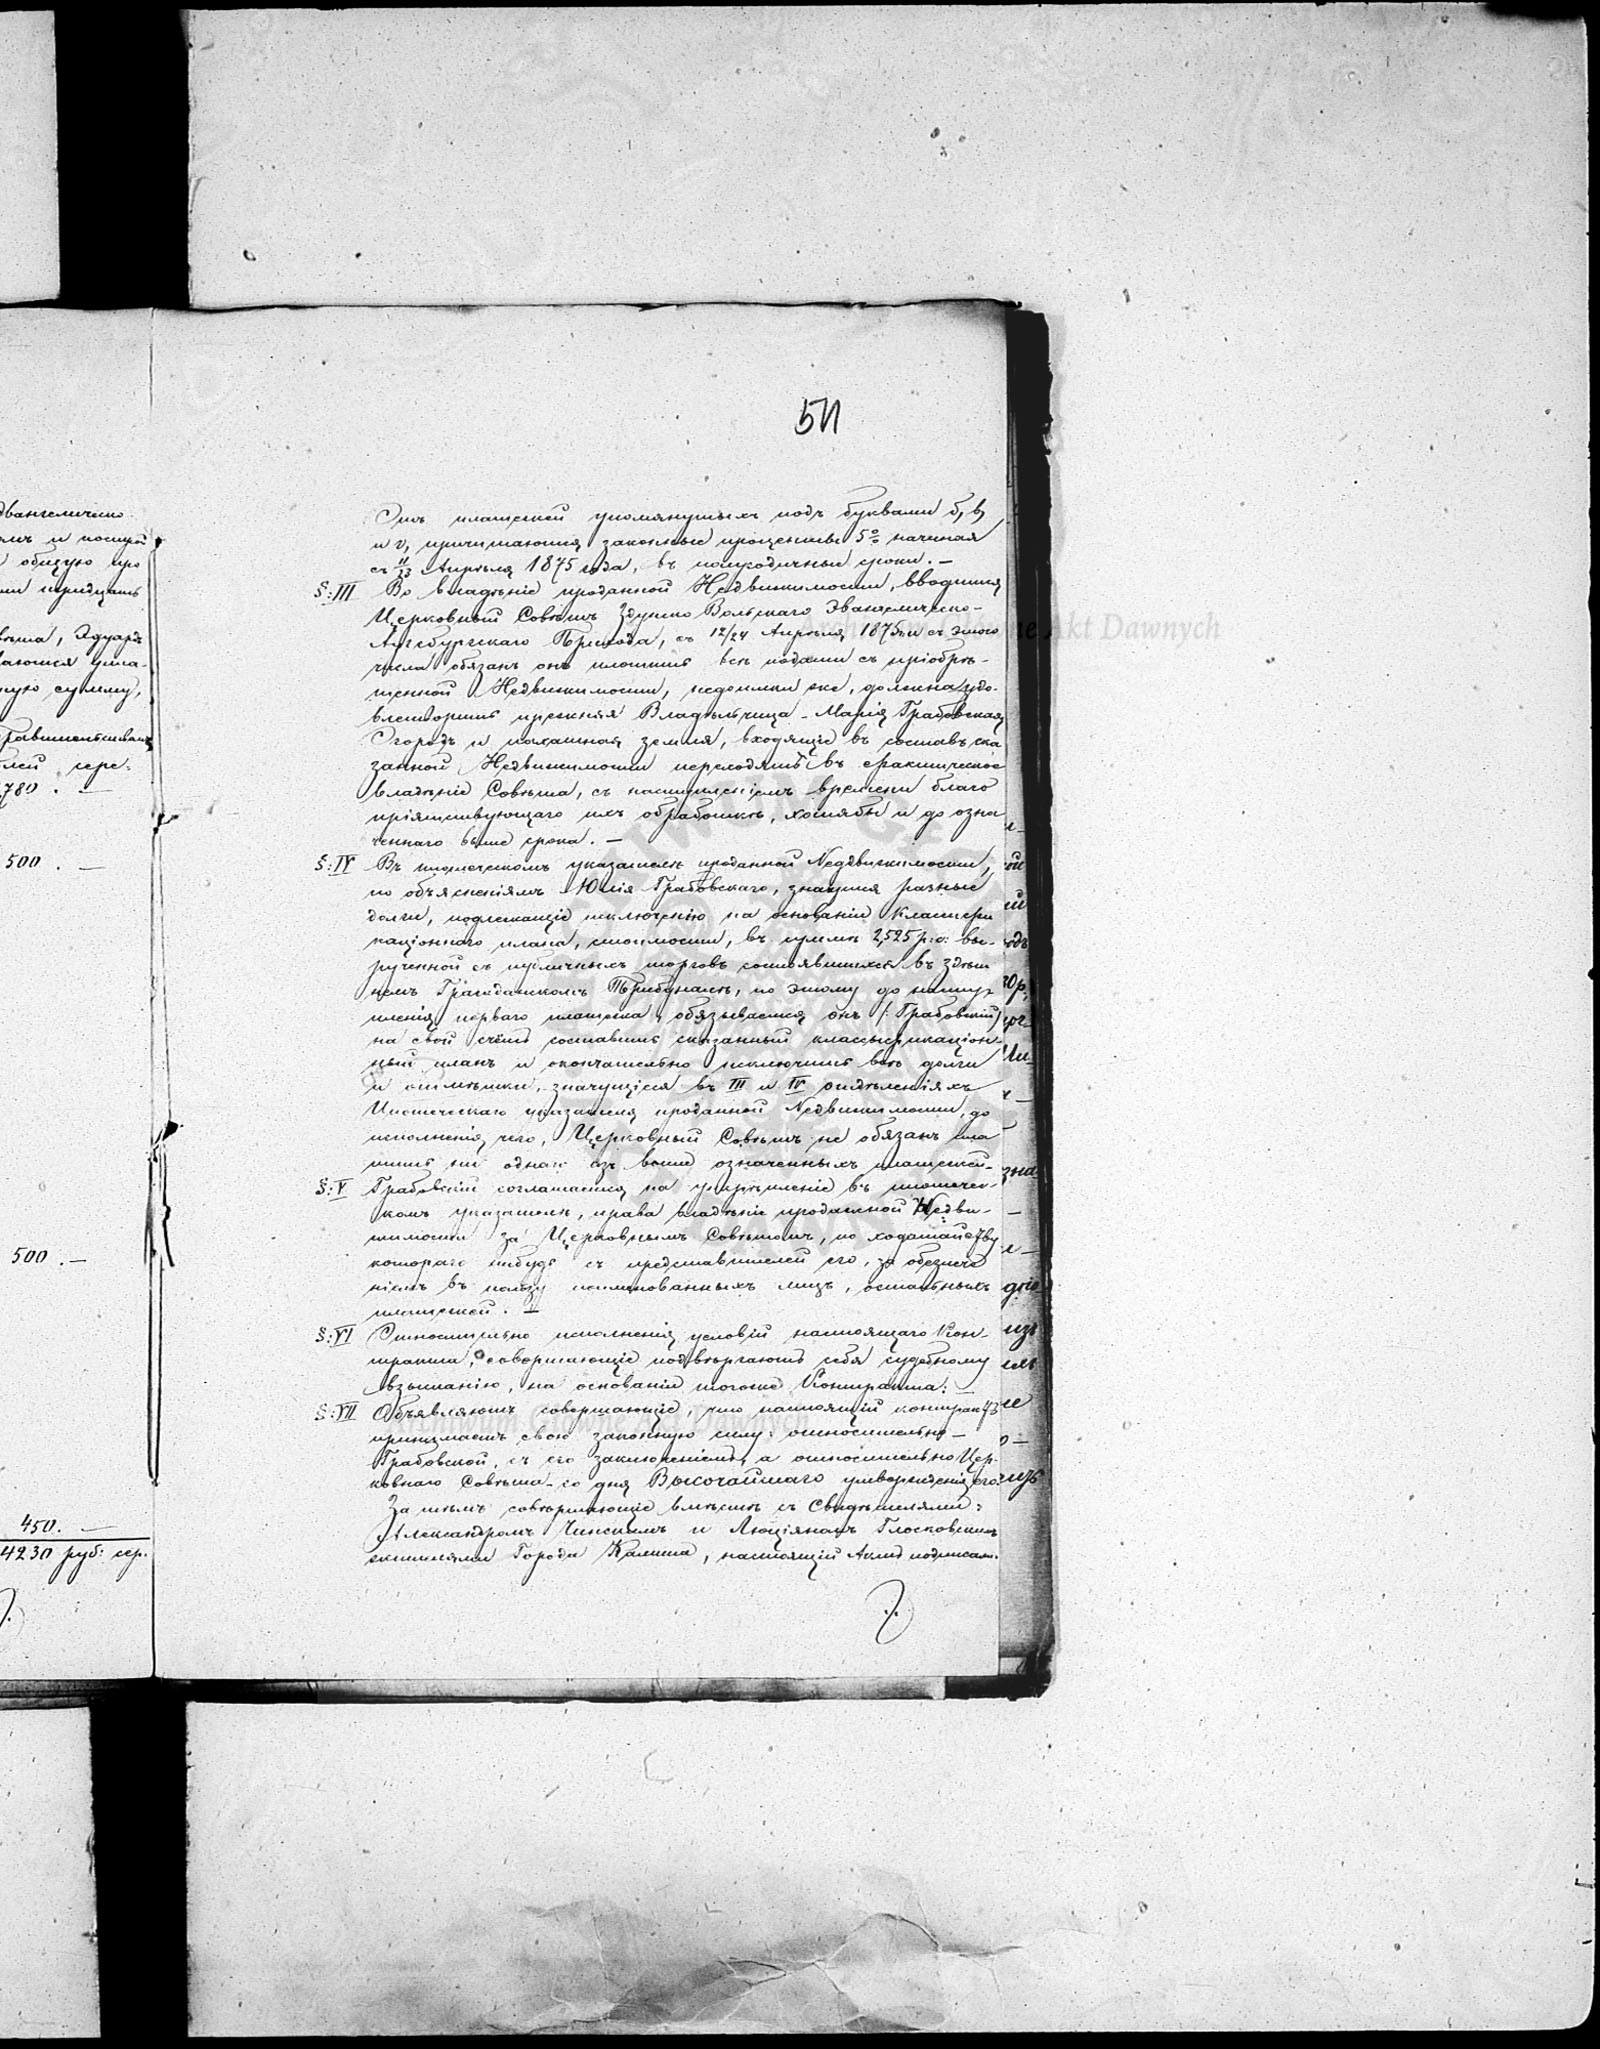 511
Отъ платежей упомянутыхъ подъ буквами б, в,
и г, причитаются законные проценты 5% начиная
съ 11/23 Апрѣля 1875 года, въ полугодичные сроки. —
§: III Во владѣніе проданной Недвижимости, вводится
Церковный Совѣтъ Здунско Вольскаго Эвангелическо-
Аугсбургскаго Прихода, съ 12/24 Апрѣля 1875 и съ этого
числа обязанъ онъ платить всѣ подати съ пріобрѣ-
тенной Недвижимости, недоимки же, должна удо-
влетворить прежняя Владѣлица - Марія Грабовская
Огородъ и пахатная земля, входящіе въ составъ ска
занной Недвижимости переходятъ въ фактическое
владѣніе Совѣта, съ наступленіемъ времени благо
пріятствующаго ихъ обработкѣ, хотябы и до озна
ченнаго выше срока. —
§: IV Въ ипотечномъ указателѣ проданной Недвижимости,
по объясненіямъ Юлія Грабовскаго, значатся разные
долги, подлежащіе исключенію на основаніи Классифи
каціоннаго плана, стоимости, въ суммѣ 2,525 р: с: вы-
рученной съ публичныхъ торговъ состоявшихся въ здѣш
немъ Гражданскомъ Трибуналѣ, по этому до насту-
пленія перваго платежа, обязывается онъ /: Грабовскій)
на свой счётъ составить сказанный классыфикаціон-
ный планъ и окончательно исключить всѣ долги
и отмѣтки, значущіеся въ III и IV отдѣленіяхъ
Ипотечнаго указателя проданной Недвижимости, до
исполненія чего, Церковный Совѣтъ не обязанъ пла
тить ни одного изъ выше означенныхъ платежей.
§: V Грабовскій соглашается на укрѣпленіе въ ипотечес-
комъ указателѣ, права владѣнія проданной Недви-
жимости за Церковнымъ Совѣтомъ, по ходатайству
котораго нибудь съ представителей его, за обезпече
ніемъ въ пользу поименованныхъ лицъ, остальныхъ
платежей. —
§: VI Относительно исполненія условій настоящаго Кон-
тракта, совершающіе подвѣргаютъ себя судебному
взысканію, на основаніи тогоже Контракта: —
§: VII Объявляютъ совершающіе, что настоящій контрактъ
принимаетъ свою законную силу: относительно —
Грабовской, съ его заключеніемъ, а относительно Цер-
ковнаго Совѣта - со дня Высочайшаго утвержденія его.
За тѣмъ совѣршающіе вмѣстѣ съ Свидѣтелями:
Александромъ Чинскимъ и Люціяномъ Глосковскимъ
жителями Города Калиша, настоящій Актъ подписали.
500 . —
500 . —
450. —
4230 руб: сер.
Archiwum Główne Akt Dawnych